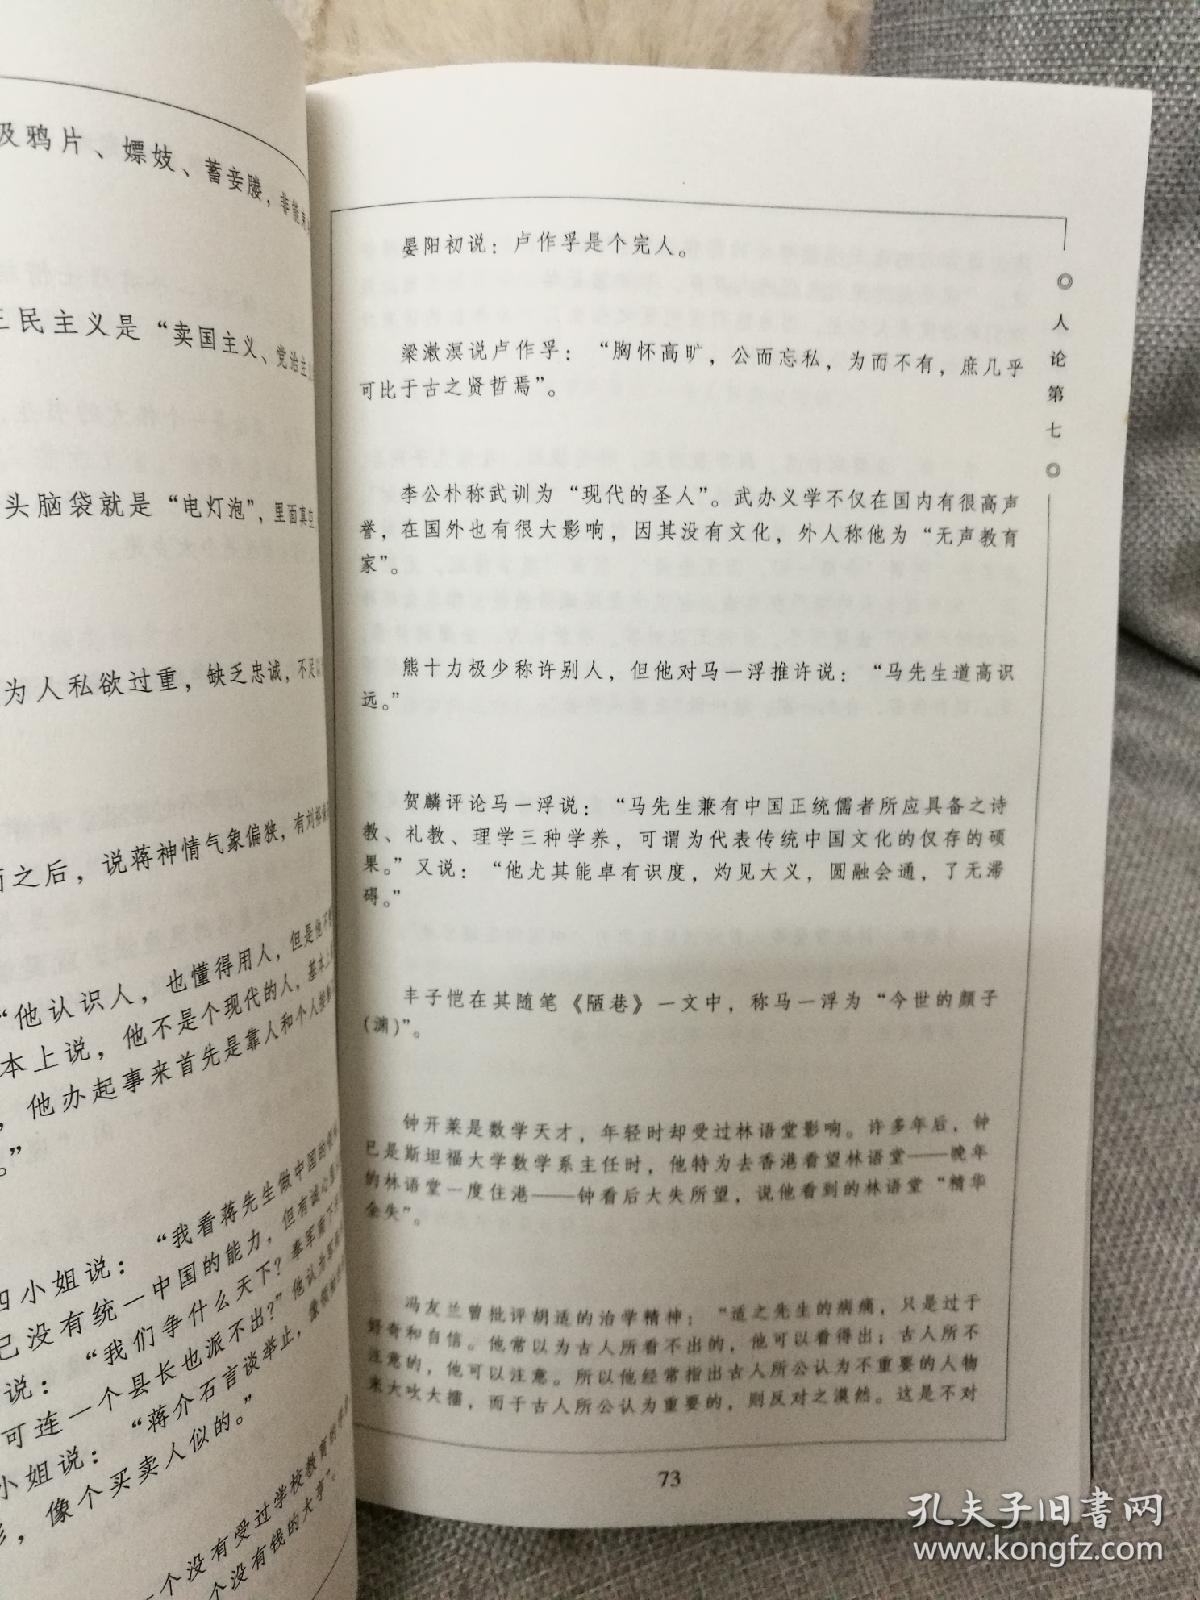 吸鸦片、嫖妓、蓄妾媵，
三民主义是“卖国主义、党治主
头脑袋就是“电灯泡”，里面真空
为人私欲过重，缺乏忠诚，不足
之后，说蒋神情气象偏狭，有刘
“他认识人，也懂得用人，但是他不
本上说，他不是个现代的人，基本上
，他办起事来首先是靠人和个人接
。”
四小姐说：“我看蒋先生做中国的
已没有统一中国的能力，但有诚心
说：“我们争什么天下？奉军
可连一个县长也派不出？”他认为
小姐说：“蒋介石言谈举止，
，像个买卖人似的。”
一个没有受过学校教育的
个没有钱的大亨”。
晏阳初说：卢作孚是个完人。
梁漱溟说卢作孚：“胸怀高旷，公而忘私，为而不有，庶几乎
可比于古之贤哲焉”。
李公朴称武训为“现代的圣人”。武办义学不仅在国内有很高声
誉，在国外也有很大影响，因其没有文化，外人称他为“无声教育
家”。
熊十力极少称许别人，但他对马一浮推许说：“马先生道高识
远。”
贺麟评论马一浮说：“马先生兼有中国正统儒者所应具备之诗
教、礼教、理学三种学养，可谓为代表传统中国文化的仅存的硕
果。”又说：“他尤其能卓有识度，灼见大义，圆融会通，了无滞
碍。”
丰子恺在其随笔《陋巷》一文中，称马一浮为“今世的颜子
（渊）”。
钟开莱是数学天才，年轻时却受过林语堂影响。许多年后，钟
已是斯坦福大学数学系主任时，他特为去香港看望林语堂——晚年
的林语堂一度住港——钟看后大失所望，说他看到的林语堂“精华
全失”。
冯友兰曾批评胡适的治学精神：“适之先生的病痛，只是过于
好奇和自信。他常以为古人所看不出的，他可以看得出；古人所不
注意的，他可以注意。所以他经常指出古人所公认为不重要的人物
来大吹大擂，而于古人所公认为重要的，则反对之漠然。这是不对
73
◎人论第七◎
孔夫子旧书网
www.kongfz.com